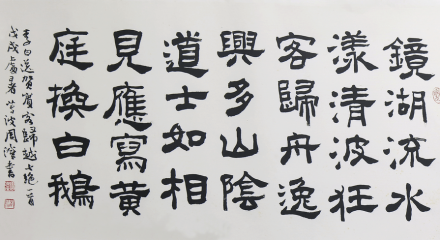 鏡湖流水
漾清波狂
客歸舟逸
興多山陰
道士如相
見應寫黃
庭換白鵝
李白送賀賓客歸越七絕一首
戊戌 周 書